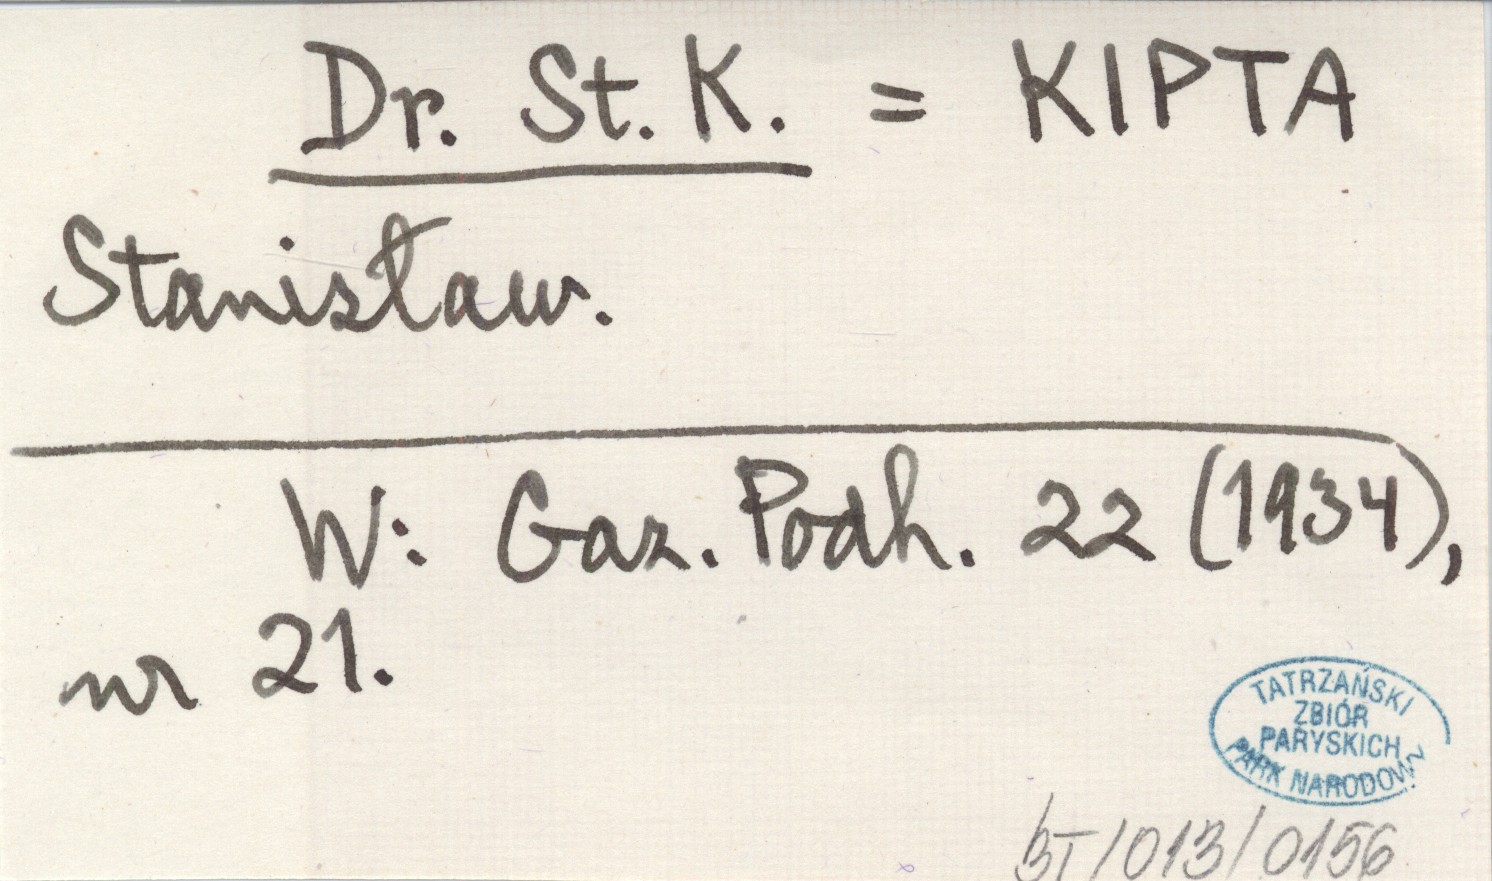 Dr. St. K. = KIPTA
Stanisław.
W: Gaz. Podh. 22 (1934),
nr 21.
TATRZAŃSKI
ZBIÓR
PARYSKICH
PARK NARODOWY
BT/013/0156